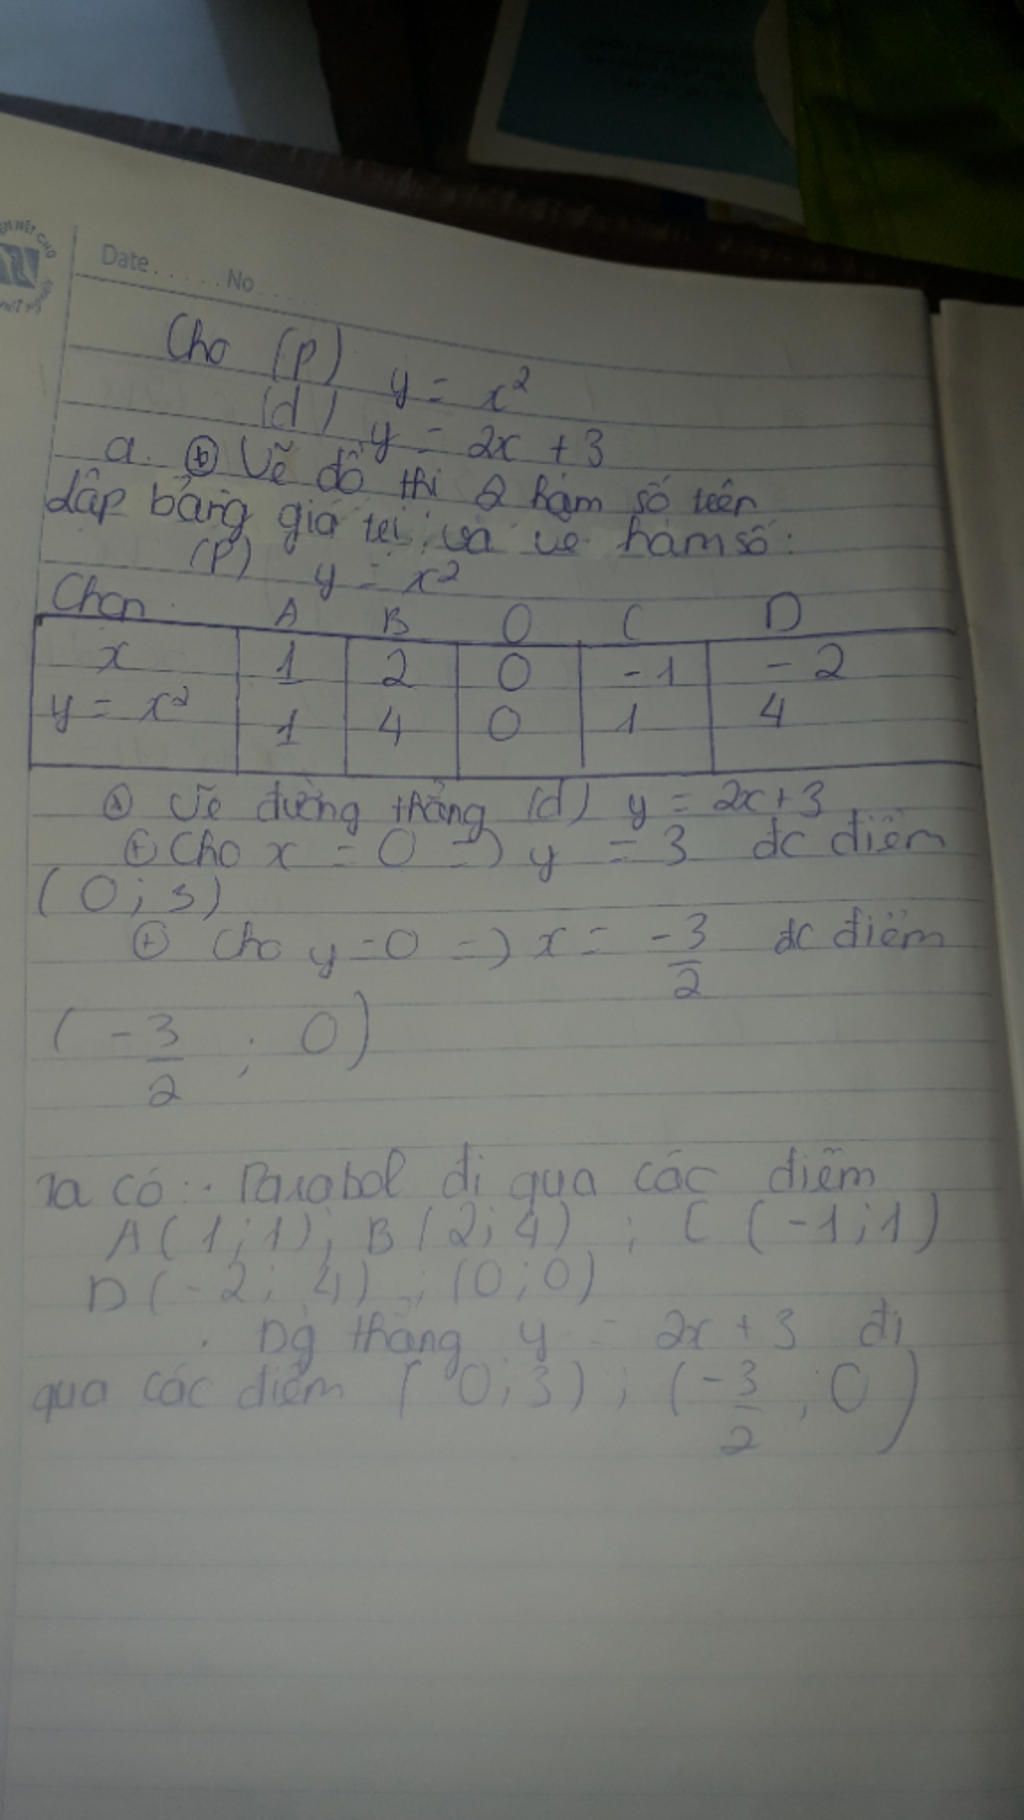 Date..... No.....
Cho (P) y = x²
(d) y = 2x + 3
a. ⊕ Vẽ đồ thị 2 hàm số trên
Lập bảng giá trị và vẽ hàm số:
(P) y = x²
Chọn A B O C D
x 1 2 0 -1 -2
y = x² 1 4 0 1 4
Vẽ đường thẳng (d) y = 2x+3
⊕ Cho x = 0 => y = 3 đc điểm
(0; 3)
⊕ Cho y = 0 => x = -3/2 đc điểm
(-3/2 ; 0)
Ta có: Parabol đi qua các điểm
A(1;1); B(2;4) ; C(-1;1)
D(-2; 4) ; (0;0)
. Đg thẳng y = 2x + 3 đi
qua các điểm (0;3) ; (-3/2 ; 0)